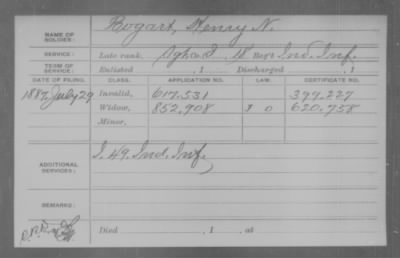 NAME OF SOLDIER: Bogart, Henry N.
SERVICE: Late rank, Sgt Co. I, 18 Reg't Ind. Inf.
TERM OF SERVICE: Enlisted , 1 Discharged , 1
DATE OF FILING. CLASS. APPLICATION NO. LAW. CERTIFICATE NO.
1887, July 29 Invalid, 617.531 399.227
Widow, 852,908 0 620,758
Minor,
ADDITIONAL SERVICES: I. 49. Ind. Inf.
REMARKS:
Died , 1 , at